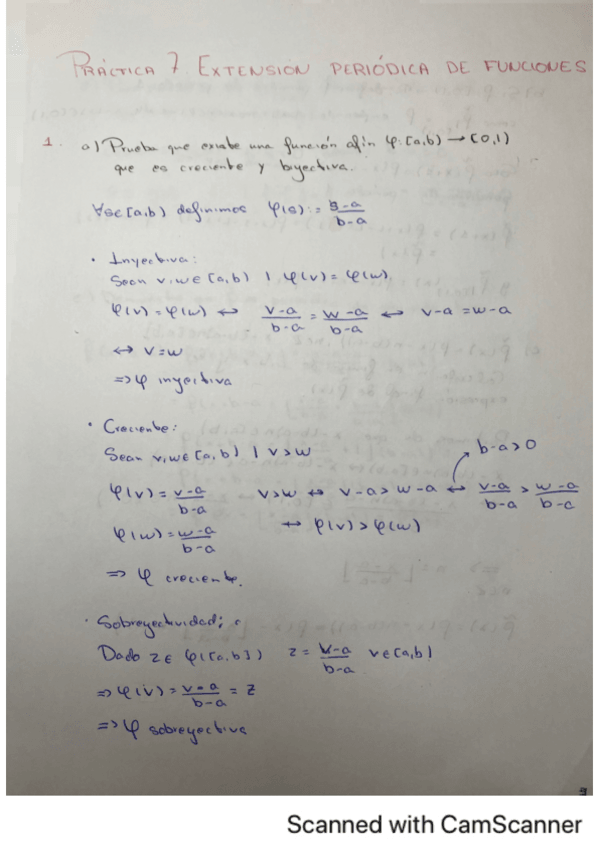 PRÁCTICA 7. EXTENSIÓN PERIÓDICA DE FUNCIONES
1. a) Prueba que existe una función afín φ: [a,b) → [0,1)
que es creciente y biyectiva.
∀s∈[a,b) definimos φ(s) := (s-a)/(b-a)
• Inyectiva:
Sean v,w∈[a,b) | φ(v) = φ(w)
φ(v) = φ(w) ↔ (v-a)/(b-a) = (w-a)/(b-a) ↔ v-a = w-a
↔ v=w
=> φ inyectiva
• Creciente:
Sean v,w∈[a,b) | v>w
b-a>0
φ(v) = (v-a)/(b-a) v>w ↔ v-a > w-a ↔ (v-a)/(b-a) > (w-a)/(b-a)
φ(w) = (w-a)/(b-a) ↔ φ(v) > φ(w)
=> φ creciente.
• Sobreyectividad:
Dado z∈ φ([a,b]) z = (v-a)/(b-a) v∈[a,b)
=> φ(v) = (v-a)/(b-a) = z
=> φ sobreyectiva
Scanned with CamScanner